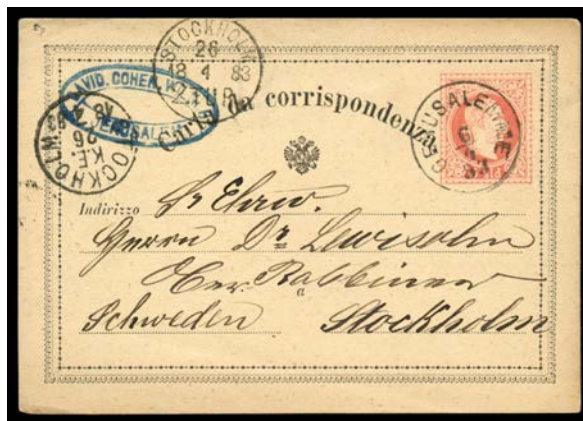 STOCKHOLM
26
4
83
DAVID. COHEN.
JERUSALEM
Carta da corrispondenza.
GERUSALEMME
STOCKHOLM
K.E.
26
Indirizzo Sr Ehrw.
Herrn Dr Lewisohn
Ober Rabbiner
a
Schweden Stockholm